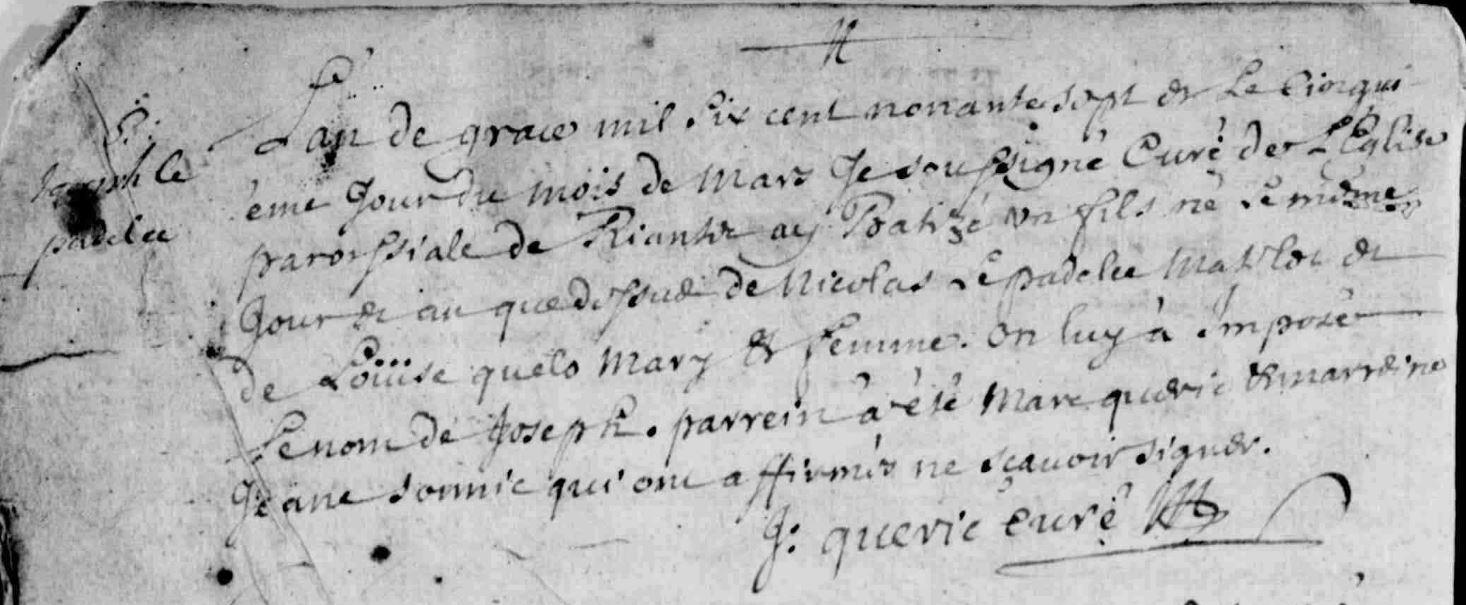 Joseph le
padelec
L'an de grace mil six cent nonante sept & Le Cinqui-
ème Jour du mois de Mars Je soussigné Curé de L'Eglise
paroissiale de Riantec ay Batizé vn fils né Le même
Jour & an que dessus de Nicolas Le padelec Matelot &
de Loüise quelo Mary & femme. on luy à Imposé
Le nom de Joseph. parrein à été Marc queric & marreine
Jeane sonnic qui ont affirmés ne scavoir signer.
J: queric Curé